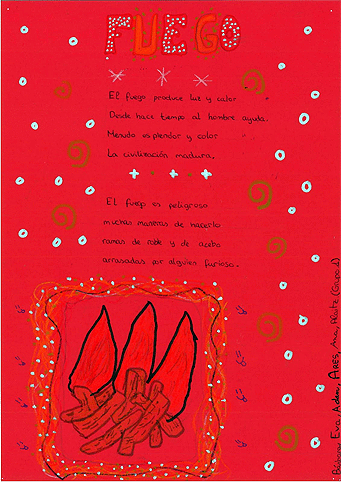 FUEGO
El fuego produce luz y calor
Desde hace tiempo al hombre ayuda.
Menudo esplendor y color
La civilización madura.
El fuego es peligroso
muchas maneras de hacerlo
ramas de roble y de acebo
arrasadas por alguien furioso.
Eva, Adam, ARES, Ana, (Grupo 2)